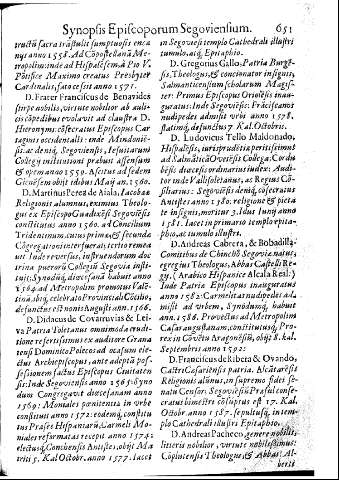 Synopsis Episcoporum Segoviensium. 651
nys anno 1558. Ad Cõpostellanã Me-
tropolim: inde ad Hispalẽsem, à Pio V.
Põtifice Maximo creatus Presbyter
Cardinalis, fato cessit anno 1571.
D. Frater Franciscus de Benavides
stirpe nobilis, virtute nobilior ab auli-
cis cõpedibus evolavit ad claustra D.
Hieronymi: cõsecratus Episcopus Car
tagines occidentalis: inde Mindonie-
sis: ac deniq, Segoviensis, Jesuitarum
Collegij institutioni probust assensum
& opem anno 1559. Ascitus ad sedem
Giennẽsem obijt idibus Maij an. 1560.
D. Martinus Perez de Aiala, Iacobae
Religionis alumnus, eximius Theolo-
gus ex Episcopo Guadixẽsi Segoviẽsis
constituitur anno 1560. ad Concilium
Tridentinum, cuius prima, & secunda
Cõgregationi interfuerat, tertio remea
vit. Inde reversus, instruendorum doc
trina puerorũ Collegiũ Segovia insti-
tuit: Synodũq, diœcesanã habuit anno
1564. ad Metropolim promotus Valẽ-
tina, ibiq, celebrato Provinciali Cõcilio,
defunctus est nonis Augusti an. 1566.
D. Didacus de Covarruvias & Lei-
va Patria Toletanus omnimoda erudi-
tione refertissimus ex auditore Grana
tensi Dominico Politeo ad ... ejusm elec-
tus Archiepiscopus, ante adeptã pos-
sessionem factus Episcopus Civitaten
sis: Inde Segoviensis anno 1565. Syno
dum Congregavit diœcesanam anno
1569. Moniales penitentia in urbe
constituit anno 1572: eodemq, constitu
tus Praeses Hispaniarũ. Carmeli Mo-
niales reformatas recepit anno 1574:
electusq, Conchensis Antistes, obijt Ma
triti 5. Kal. Octobr. anno 1577. Iacet
in Segoviẽsi templo Cathedrali illustri
tumulo, atq, Epitaphio.
D. Gregorius Gallo, Patria Burgẽ-
sis, Theologus, & concionator insignis,
Salmanticensium scholarum Magis-
ter: Primus Episcopus Oriolẽsis inau-
guratus: Inde Segoviẽsis: Praeiscanos
nudipedes admisit urbi anno 1578.
statimq, defunctus 7. Kal. Octobris.
D. Ludovicus Tello Maldonado,
Hispalẽsis, iurisprudẽtia peritissimus
ad Salmãticã Ovetẽsi Collega: Cordu
bẽsis diœcesis ordinarius iudex: Audi-
tor inde Vallisoletanus, ac Regius Cõ-
siliarius: Segoviensis deniq, cõsecratus
Antistes anno 1580. religione & pieta
te insignis, moritur 3. Idus Iunij anno
1581. Iacet in primario templo epita-
phio, ac tumulo illustri.
D. Andreas Cabrera, & Bobadilla:
Comitibus de Chinchõ Segoviae natus,
egregius Theologus, Abbas Castelli Re-
gij. (Anodro Hispanice Alcala Real:)
Inde Patria Episcopus inauguratus
anno 1582. Carmelitas nudipedes ad-
misit ad urbem, Synodumq, habuit
ann. 1586. Provectus ad Metropolim
Caesaraugustanam, constitutusq, Pro-
rex in Covẽtu Aragoniẽsi, obijt 8. kal.
Septembris anno 1592.
D. Franciscus de Ribera & Ovando,
Castro Caesariensis patria. Alcãtarẽsis
Religionis alũnus, in supremo fidei se-
natu Censor: Segoviẽsis Praesul conse-
cratus bimestri cõsuptus est 17. Kal.
Octobr anno 1587. sepultusq, in tem-
plo Cathedrali illustri Epitaphio.
D. Andreas Pacheco, genere nobilis,
litteris nobilior, virtute nobilissimus.
Cõplutensis Theologus, & Abbas Al-
berit